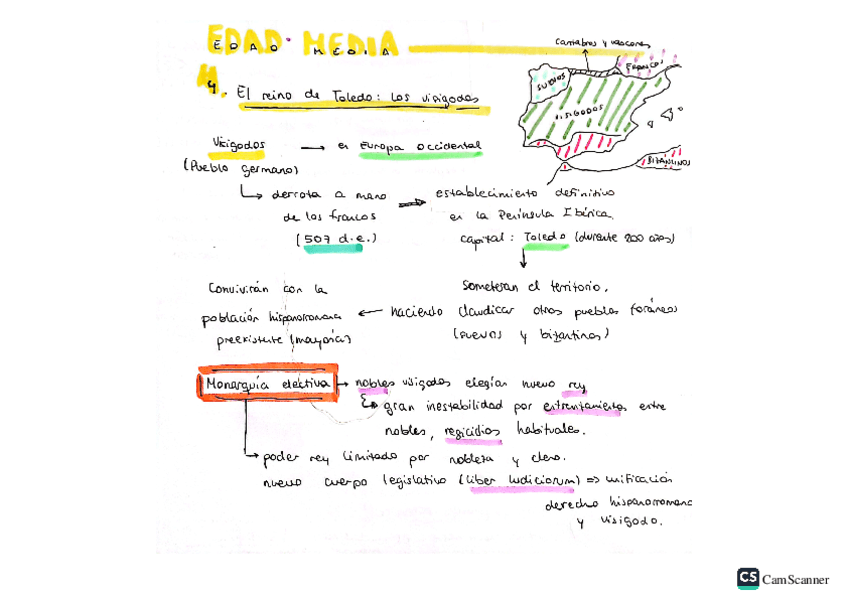 EDAD MEDIA
4. El reino de Toledo: los visigodos
Cántabros y vascones
FRANCOS
SUEVOS
VISIGODOS
BIZANTINOS
Visigodos → en Europa occidental
(Pueblo germano)
↳ derrota a mano de los francos (507 d.e.) ⇒ establecimiento definitivo
en la Península Ibérica.
capital: Toledo (durante 200 años)
↓
someterán el territorio.
haciento claudicar otros pueblos foráneos
(suevos y bizantinos)
← Convivirán con la
población hispanorromana
preexistente (mayoría)
Monarquía electiva → nobles visigodos elegían nuevo rey
↳ gran inestabilidad por enfrentamientos entre
nobles, regicidios habituales.
→ poder rey limitado por nobleza y clero.
nuevo cuerpo legislativo (liber Iudiciorum) => unificación
derecho hispanorromano
y visigodo.
CS CamScanner